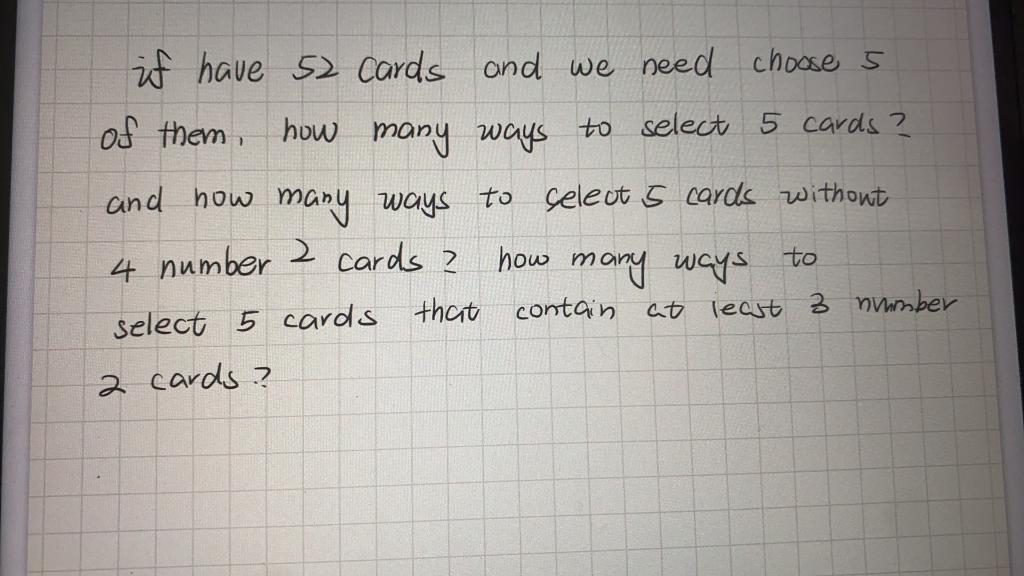 if have 52 cards and we need choose 5
of them, how many ways to select 5 cards?
and how many ways to select 5 cards without
4 number 2 cards? how many ways to
select 5 cards that contain at least 3 number
2 cards?